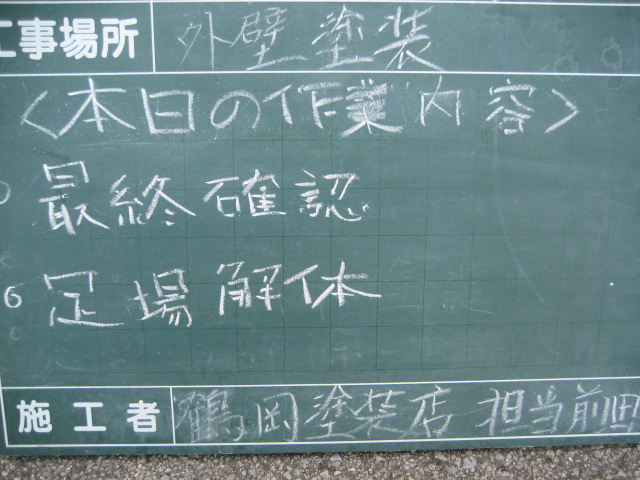 工事場所 外壁塗装
<本日の作業内容>
最終確認
6 足場解体
施工者 鶴岡塗装店 担当前田